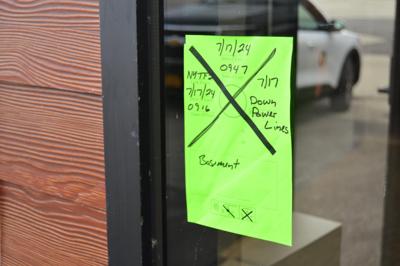 7/17/24
0947
NYTF1
7/17/24
0916
7/17
Down
Power
Lines
Basement